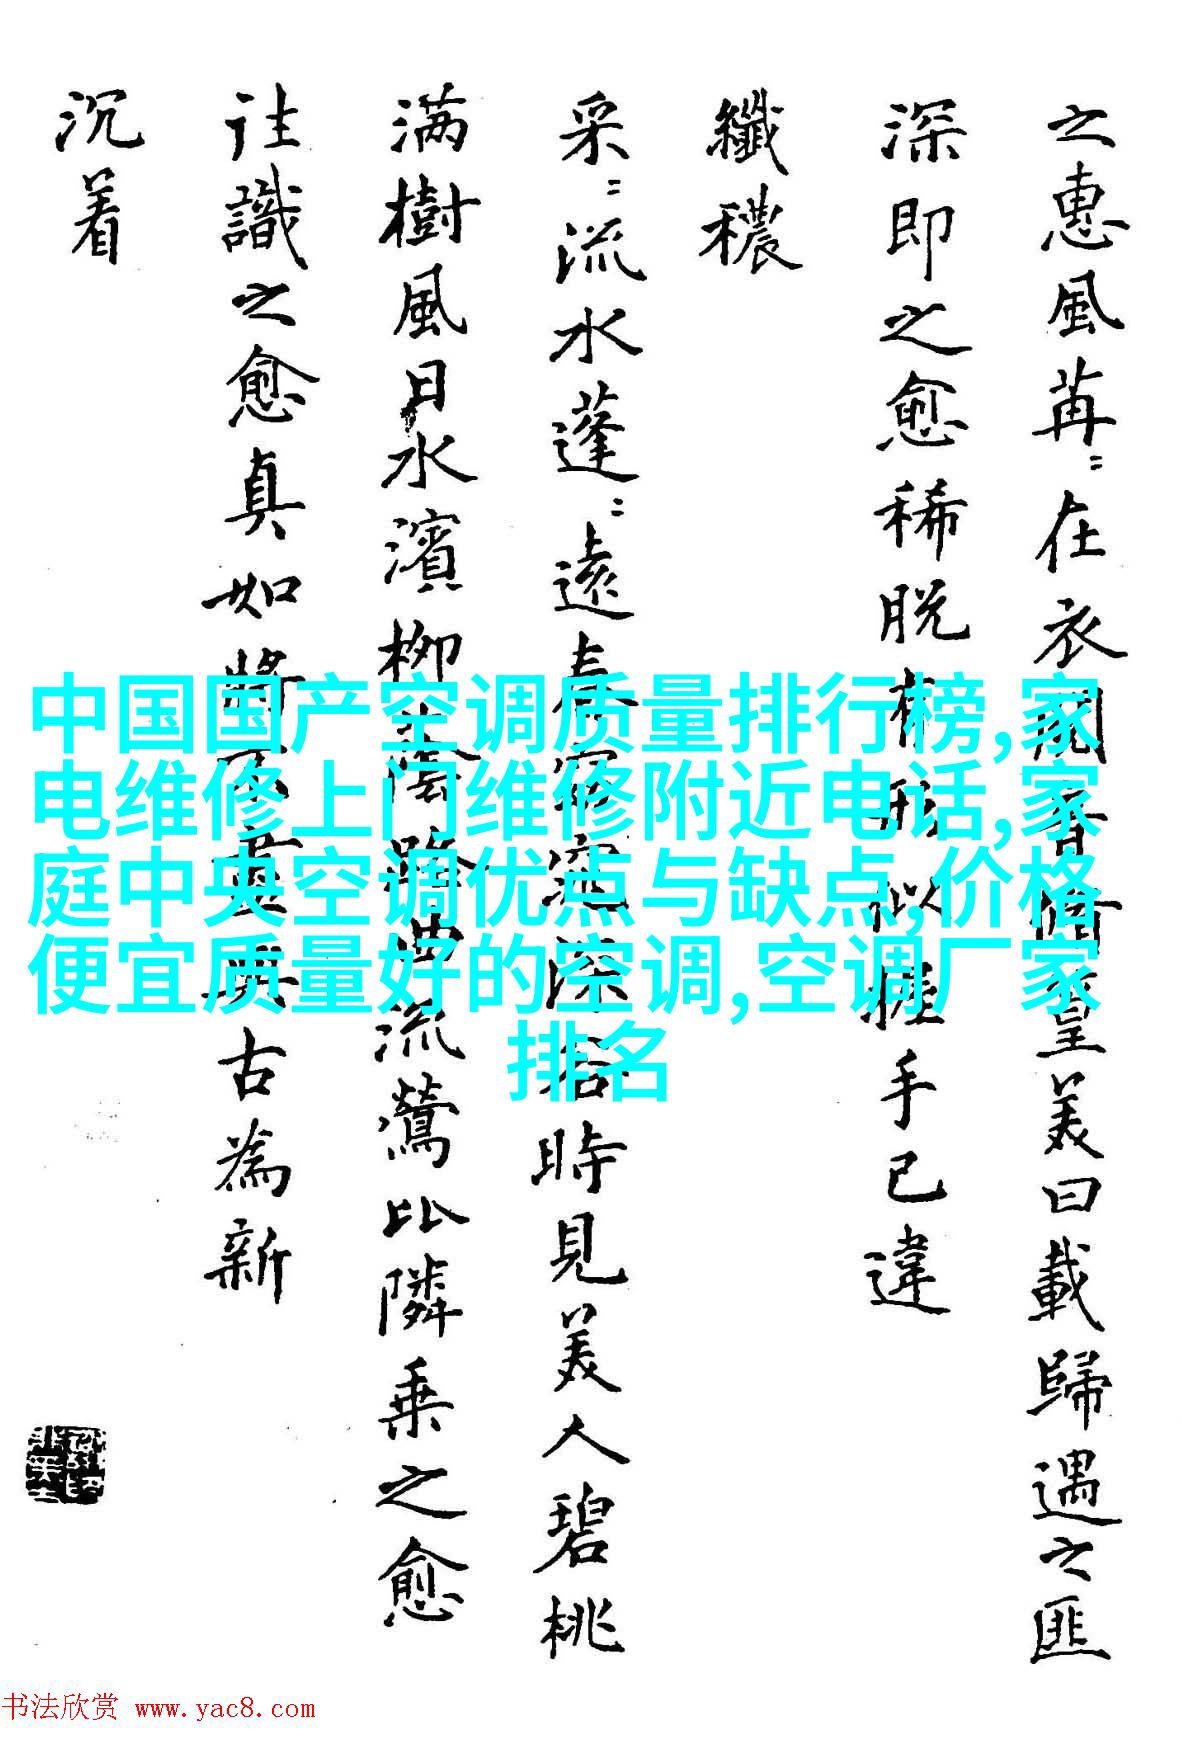 之惠風苒〻在衣閱音脩篁美曰載歸遇之匪
深即之愈稀脱有形似握手已違
纖穠
采〻流水蓬〻遠春窈窕深谷時見美人碧桃
满樹風日水濱柳陰路曲流鶯比隣乘之愈
往識之愈真如將不盡與古為新
沉着
中国国产空调质量排行榜,家
电维修上门维修附近电话,家
庭中央空调优点与缺点,价格
便宜质量好的空调,空调厂家
排名
书法欣赏 www.yac8.com